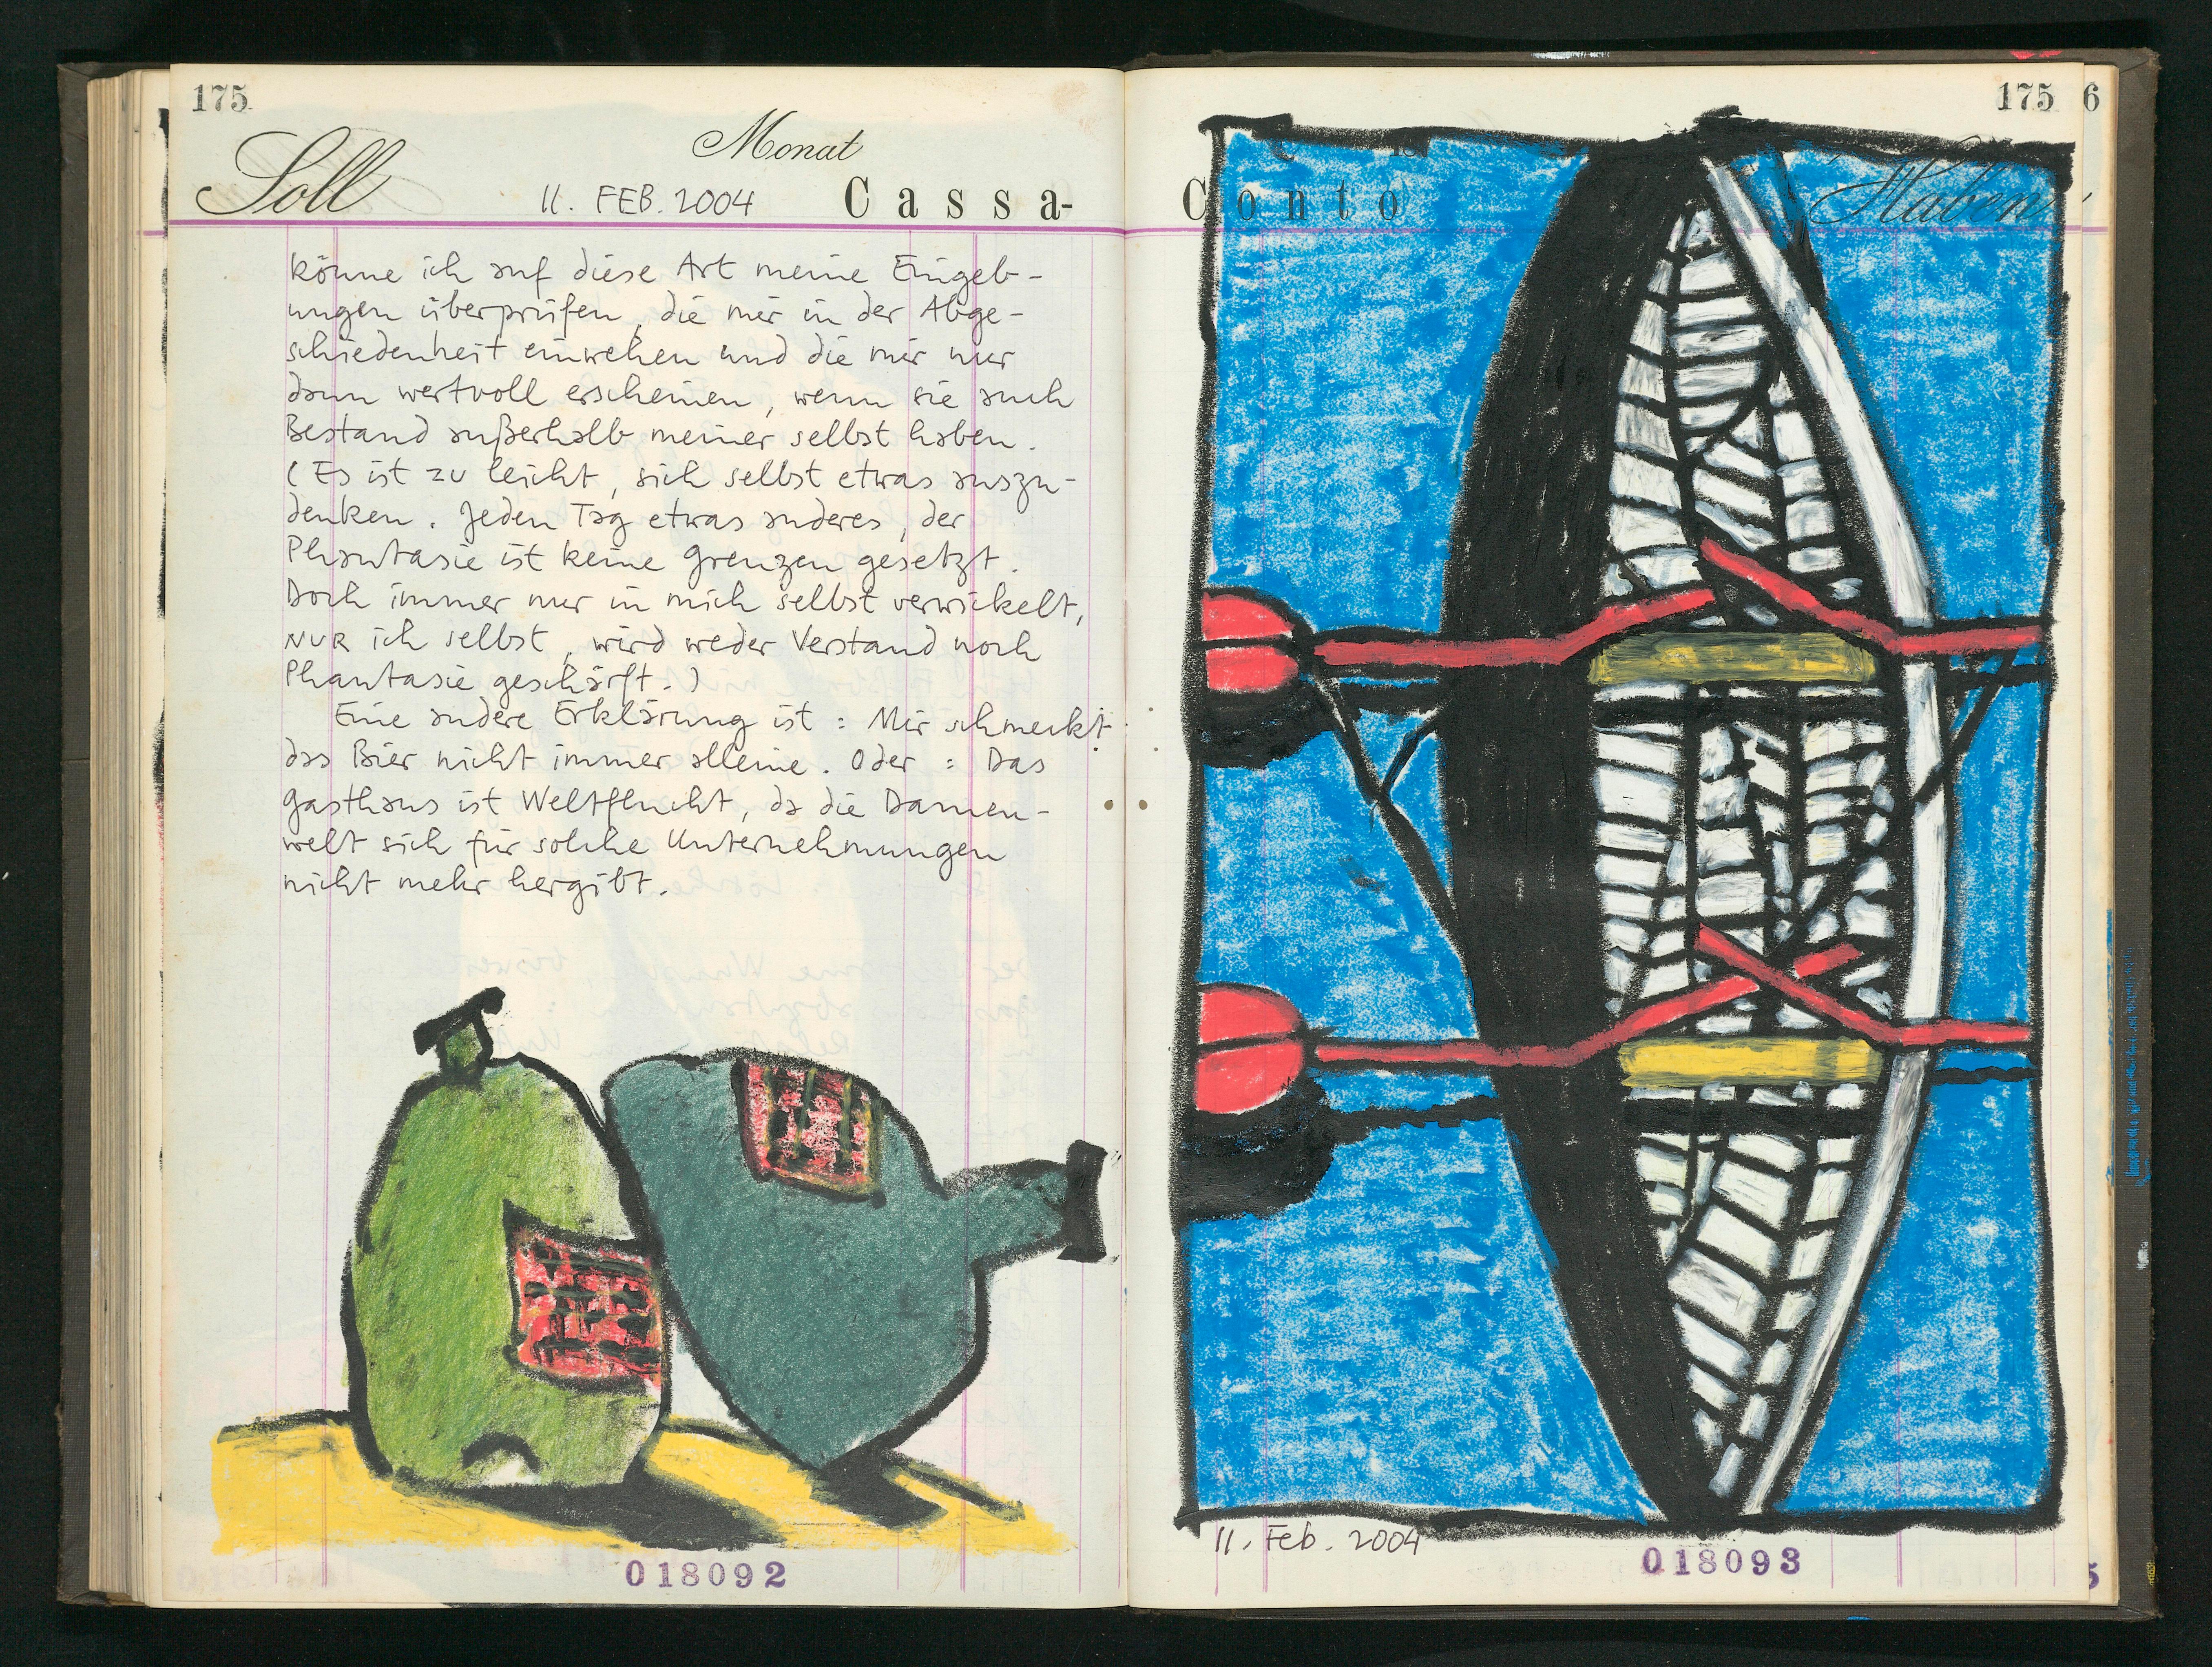 175
Monat
Soll
11. FEB. 2004 Cassa-
könne ich auf diese Art meine Eingeb-
ungen überprüfen, die mir in der Abge-
schiedenheit einwehen und die mir nur
dann wertvoll erscheinen, wenn sie auch
Bestand außerhalb meiner selbst haben.
(Es ist zu leicht, sich selbst etwas auszu-
denken. Jeden Tag etwas anderes, der
Phantasie ist keine Grenzen gesetzt.
Doch immer nur in mich selbst verwickelt,
NUR ich selbst, wird weder Verstand noch
Phantasie geschärft.)
Eine andere Erklärung ist: Mir schmeckt
das Bier nicht immer alleine. Oder: Das
Gasthaus ist Weltflucht, da die Damen-
welt sich für solche Unternehmungen
nicht mehr hergibt.
018092
175 6
Conto Haben
11. Feb. 2004
018093
5